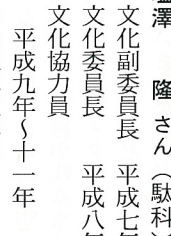 澤　隆 さん（駄科
文化副委員長　平成七年
文化委員長　平成八年
文化協力員
平成九年～十一年